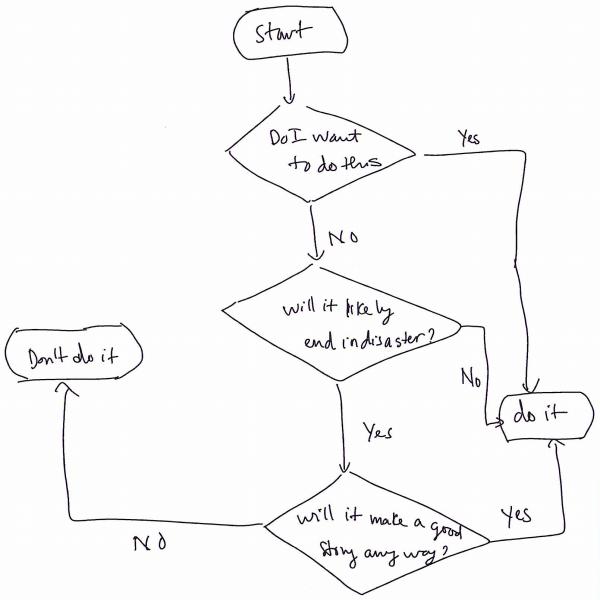 Start
Do I want
to do this
Yes
No
will it likely
end in disaster?
Don't do it
No
do it
Yes
will it make a good
story any way?
Yes
NO